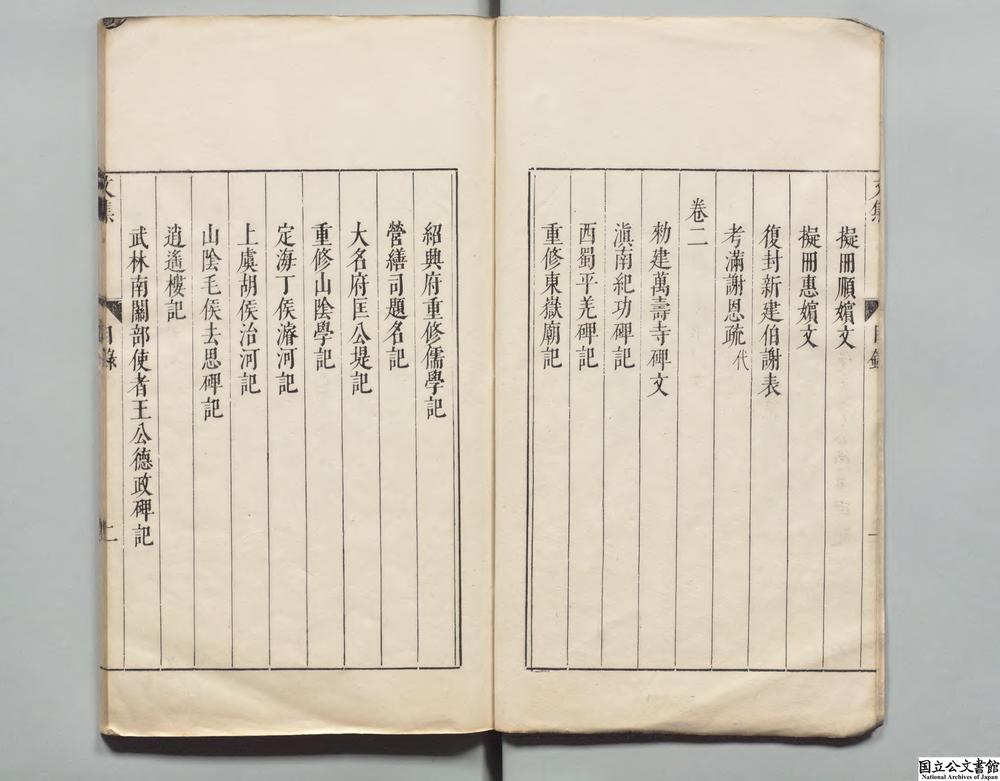 擬冊順嬪文
擬冊惠嬪文
復封新建伯謝表
考滿謝恩疏 代
卷二
勑建萬壽寺碑文
滇南紀功碑記
西蜀平羌碑記
重修東嶽廟記
紹興府重修儒學記
營繕司題名記
大名府匡公堤記
重修山陰學記
定海丁侯濬河記
上虞胡侯治河記
山陰毛侯去思碑記
逍遙樓記
武林南關部使者王公德政碑記
文集
目錄
二
国立公文書館
National Archives of Japan